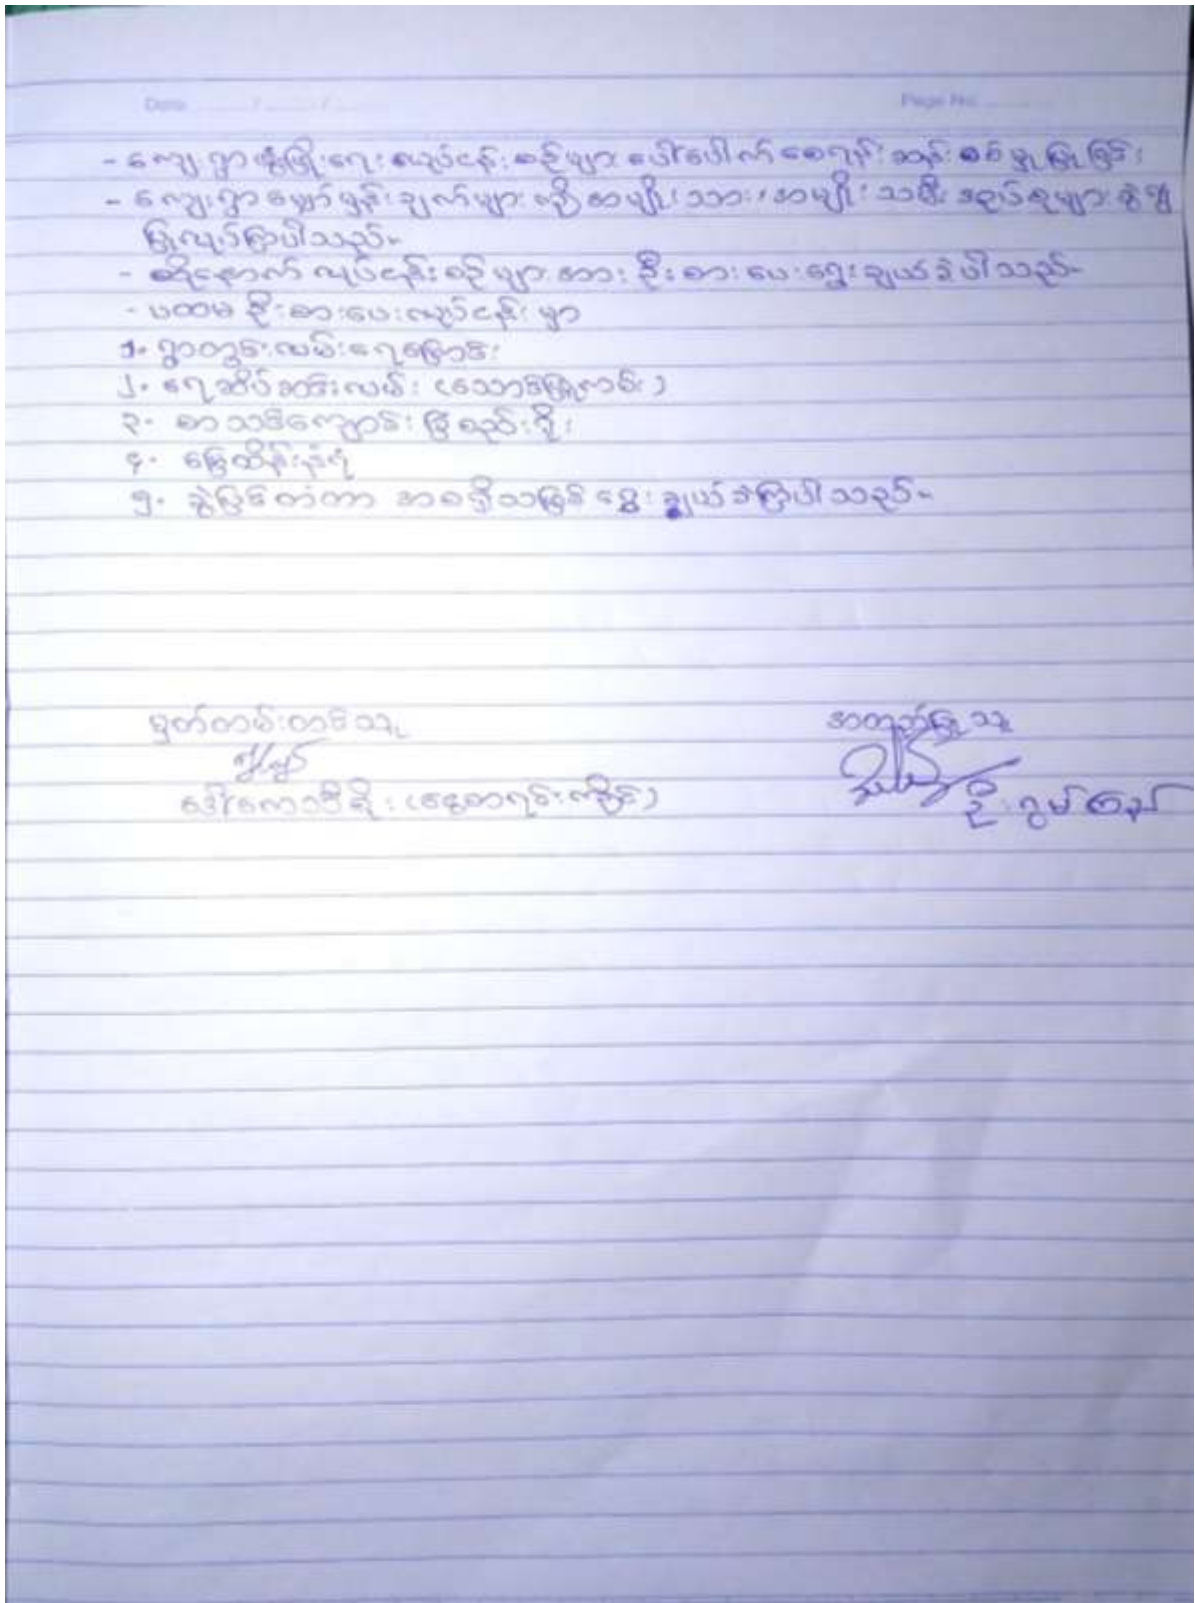 Date ......... / ......... / .........
Page No. ............
- ကျေးရွာဖွံ့ဖြိုးရေး လုပ်ငန်းစဉ်များ ပေါ်ပေါက်စေရန် ဆန်းစစ်မှုပြုခြင်း
- ကျေးရွာမျှော်မှန်းချက်များကို အမျိုးသား၊ အမျိုးသမီး အုပ်စုများခွဲ၍
ပြုလုပ်ကြပါသည်။
- ထို့နောက် လုပ်ငန်းစဉ်များအား ဦးစားပေးရွေးချယ်ခဲ့ပါသည်။
- ပထမ ဦးစားပေးလုပ်ငန်းမှာ
၁. ရွာတွင်းလမ်းရေမြောင်း
၂. ရေဆိပ်ဆင်းလမ်း (သောင်ပြုကမ်း)
၃. စာသင်ကျောင်းခြံစည်းရိုး
၄. မြေထိန်းနံရံ
၅. ဆွဲမြင်တံတာ အစရှိသဖြင့် ရွေးချယ်ခဲ့ကြပါသည်။
မှတ်တမ်းတင်သူ
အတည်ပြုသူ
ဒေါ်
ဦး